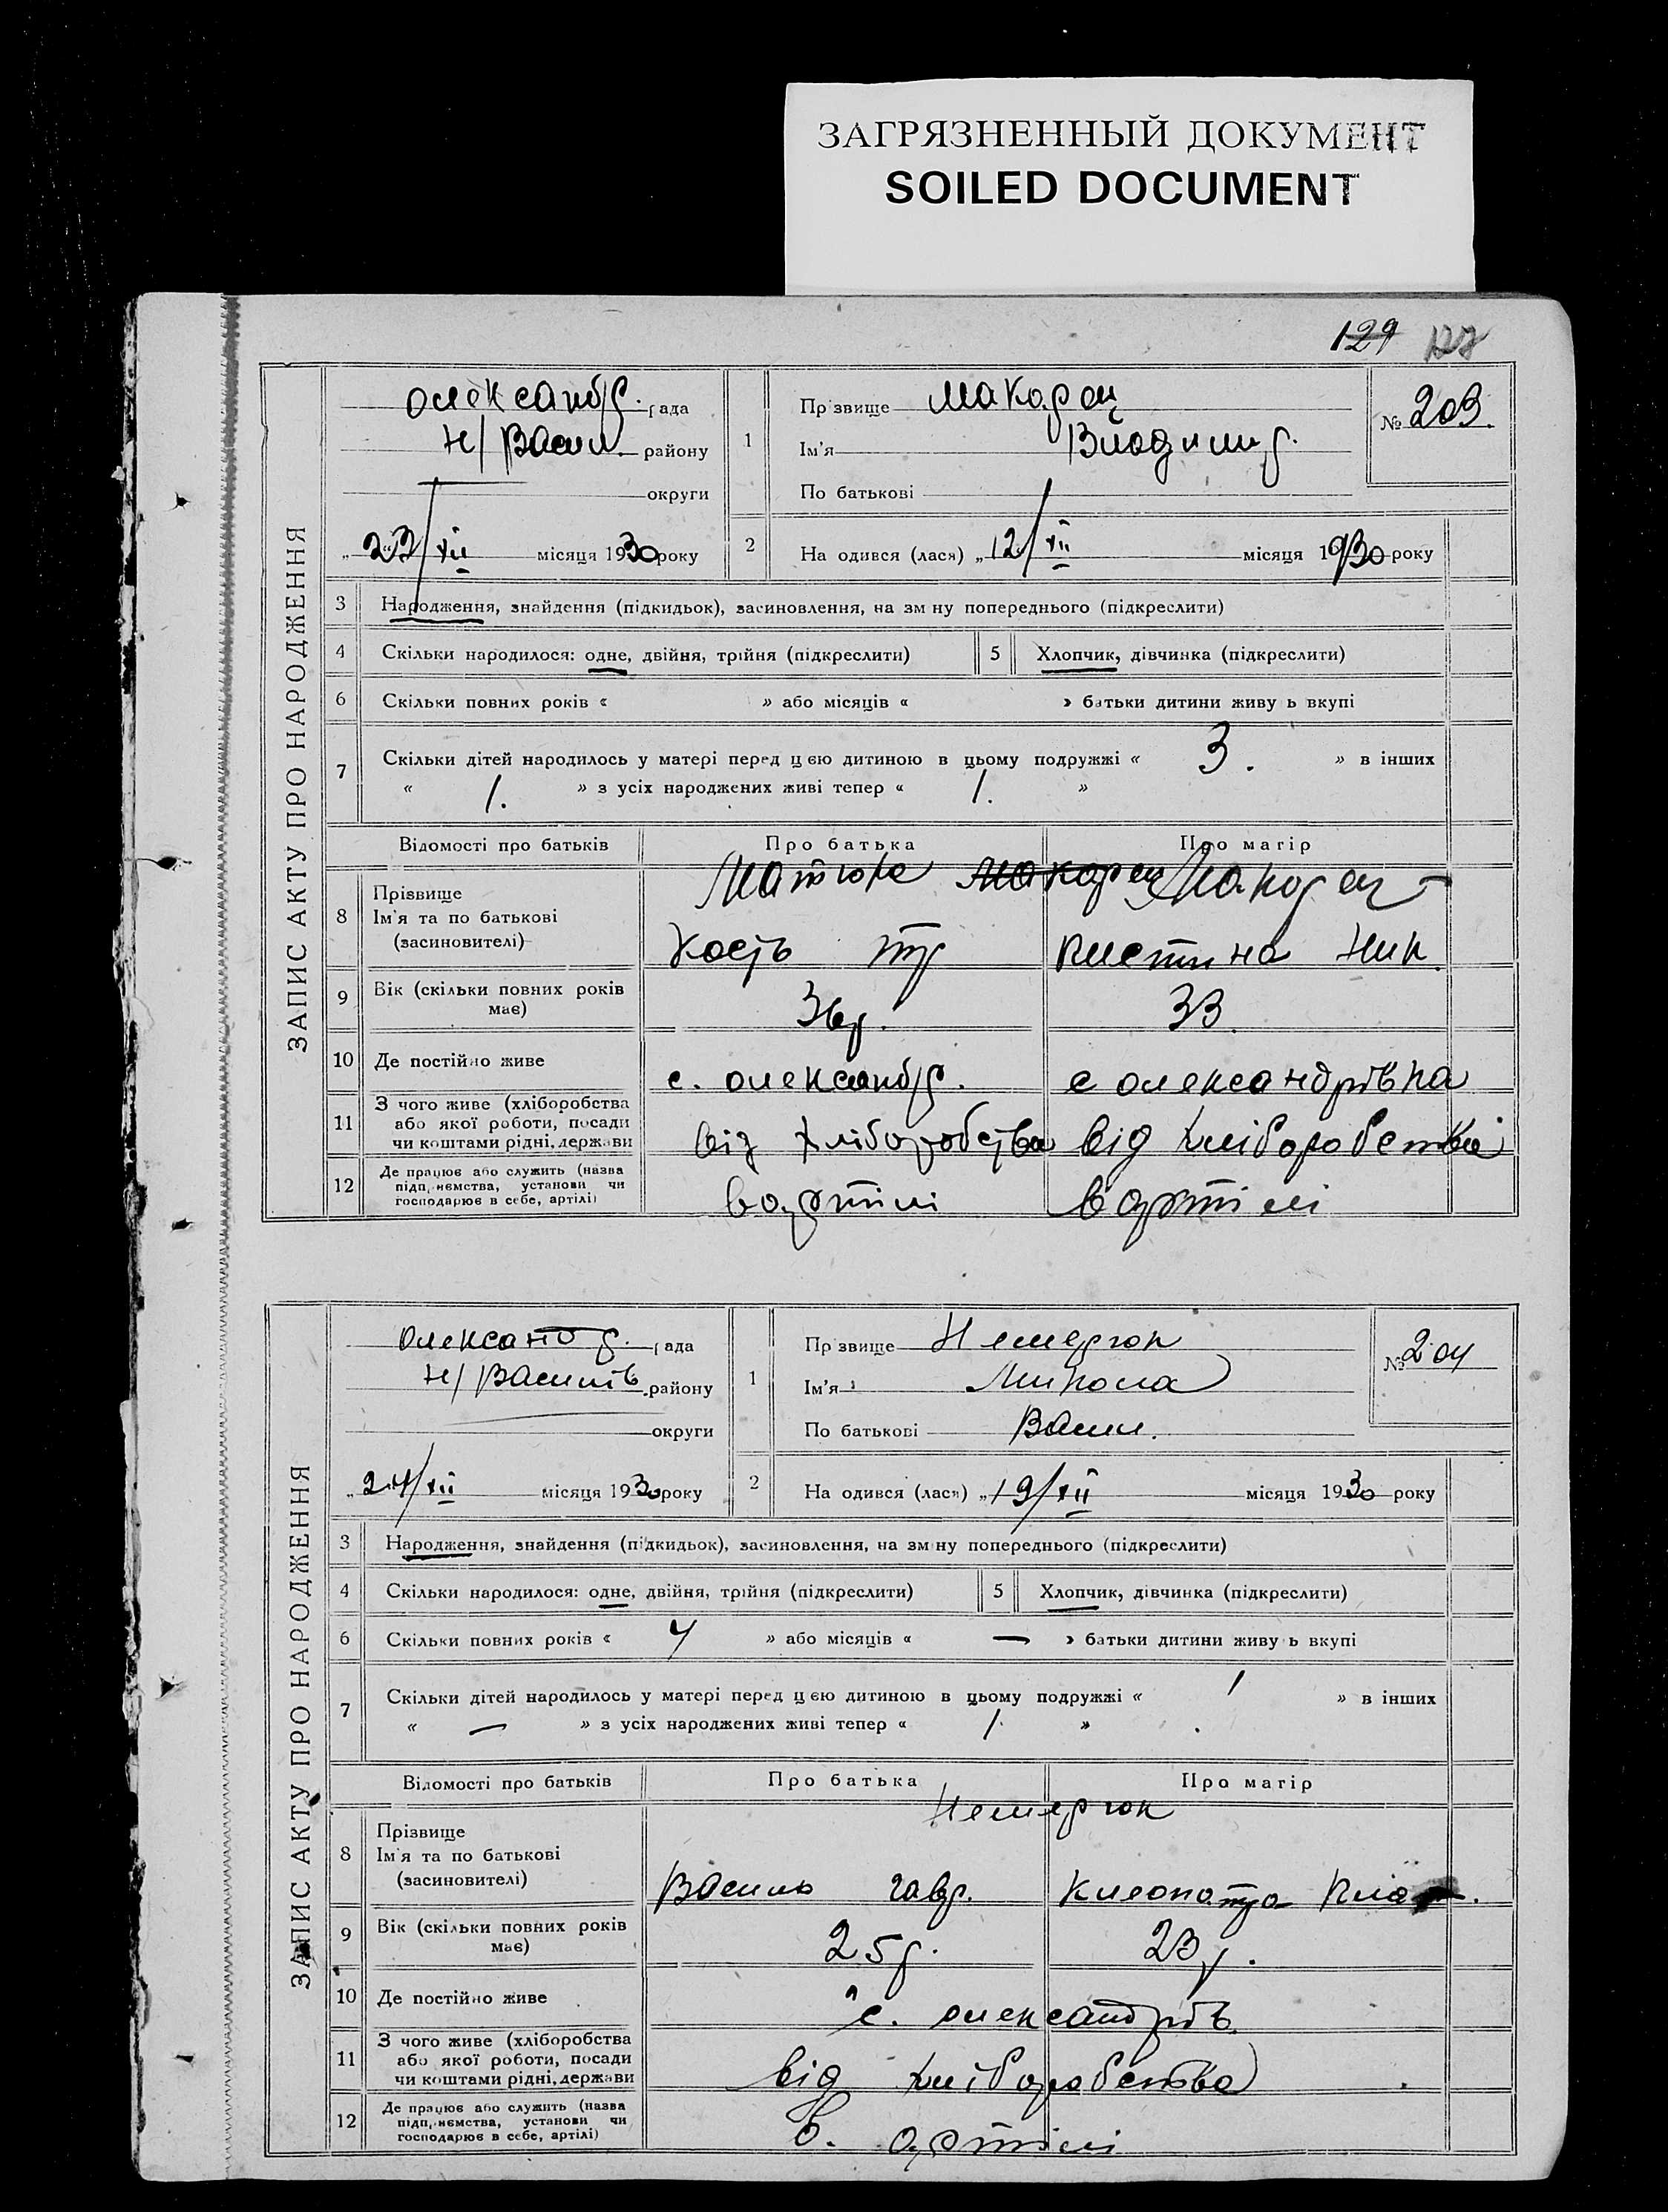 ЗАГРЯЗНЕННЫЙ ДОКУМЕНТ
SOILED DOCUMENT
129 127
ЗАПИС АКТУ ПРО НАРОДЖЕННЯ
Олександр. рада
Н/Васил. району
округи
„23/XII місяця 1930 року
1 Прізвище Макорец
Ім'я Володимир.
По батькові
№ 203.
2 На одився (лася) „12/XII місяця 1930 року
3 Народження, знайдення (підкидьок), засиновлення, на зм ну попереднього (підкреслити)
4 Скільки народилося: одне, двійня, трійня (підкреслити) 5 Хлопчик, дівчинка (підкреслити)
6 Скільки повних років « » або місяців « » батьки дитини живу ь вкупі
7 Скільки дітей народилось у матері перед цєю дитиною в цьому подружжі « 3. » в інших
« 1. » з усіх народжених живі тепер « 1. »
Відомості про батьків Про батька Про матір
8 Прізвище
Ім'я та по батькові
(засиновителі)
Макорец Макорец
Кость
9 Вік (скільки повних років має) 36р. 33.
10 Де постійно живе с. Олександр. с Олександрівка
11 З чого живе (хліборобства
або якої роботи, посади
чи коштами рідні, держави
від хліборобства від хліборобства
12 Де працює або служить (назва
підп, ємства, установи чи
господарює в себе, артілі)
в артілі в артілі
ЗАПИС АКТУ ПРО НАРОДЖЕННЯ
Олександр. рада
Н/Василів. району
округи
„24/XII місяця 1930 року
1 Прізвище Немерюк
Ім'я Микола
По батькові Васил.
№ 204
2 На одився (лася) „19/XII місяця 1930 року
3 Народження, знайдення (підкидьок), засиновлення, на зм ну попереднього (підкреслити)
4 Скільки народилося: одне, двійня, трійня (підкреслити) 5 Хлопчик, дівчинка (підкреслити)
6 Скільки повних років « 4 » або місяців « — » батьки дитини живу ь вкупі
7 Скільки дітей народилось у матері перед цєю дитиною в цьому подружжі « 1 » в інших
« — » з усіх народжених живі тепер « 1. »
Відомості про батьків Про батька Про матір
8 Прізвище
Ім'я та по батькові
(засиновителі)
Немерюк
Василь Гавр. Клеопатра
9 Вік (скільки повних років має) 25р. 23р.
10 Де постійно живе с. Олександрів.
11 З чого живе (хліборобства
або якої роботи, посади
чи коштами рідні, держави
від хліборобства
12 Де працює або служить (назва
підп, ємства, установи чи
господарює в себе, артілі)
в. артілі